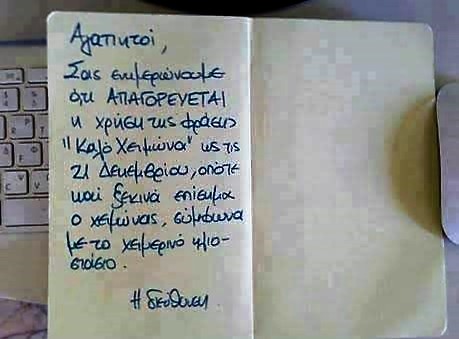 Αγαπητοί,
Σας ενημερώνουμε
ότι ΑΠΑΓΟΡΕΥΕΤΑΙ
η χρήση της φράσης
"Καλό Χειμώνα" ως τις
21 Δεκεμβρίου, οπότε
και ξεκινά επίσημα
ο χειμώνας, σύμφωνα
με το χειμερινό ηλιο-
στάσιο.
Η διεύθυνση